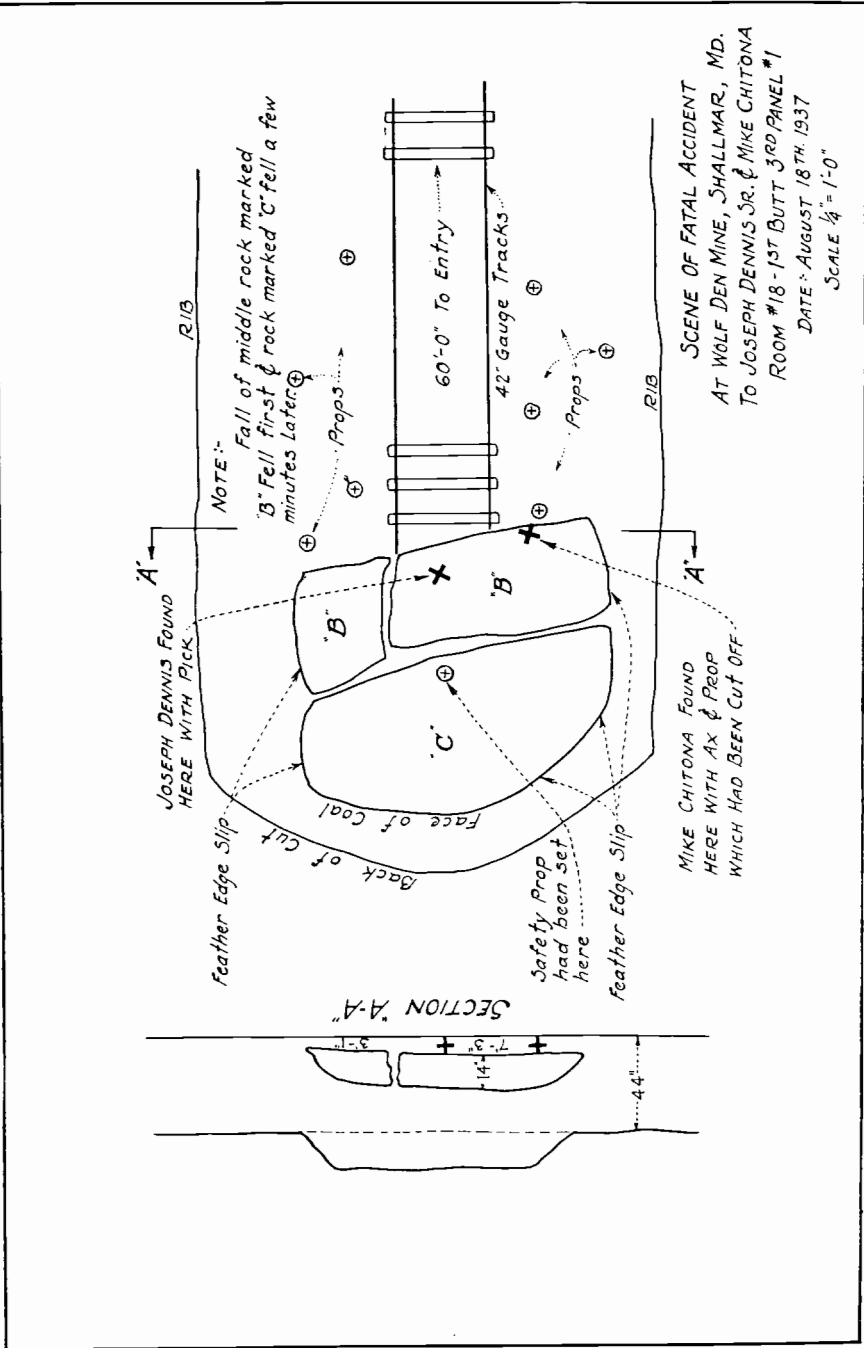 SCENE OF FATAL ACCIDENT
AT WOLF DEN MINE, SHALLMAR, MD.
TO JOSEPH DENNIS SR. & MIKE CHITONA
ROOM #18 - 1ST BUTT 3RD PANEL #1
DATE:- AUGUST 18TH. 1937
SCALE ¼" = 1'-0"
NOTE:-
Fall of middle rock marked
"B" Fell first & rock marked "C" fell a few
minutes Later.
RIB
Props
60'-0" To Entry
42" Gauge Tracks
Props
RIB
"A"
"A"
JOSEPH DENNIS FOUND
HERE WITH PICK
"B"
"B"
"C"
MIKE CHITONA FOUND
HERE WITH AX & PROP
WHICH HAD BEEN CUT OFF
Feather Edge Slip
Face of Coal
Back of Cut
Safety Prop
had been set
here
Feather Edge Slip
SECTION "A-A"
3'-1"
7'-3"
14"
44"